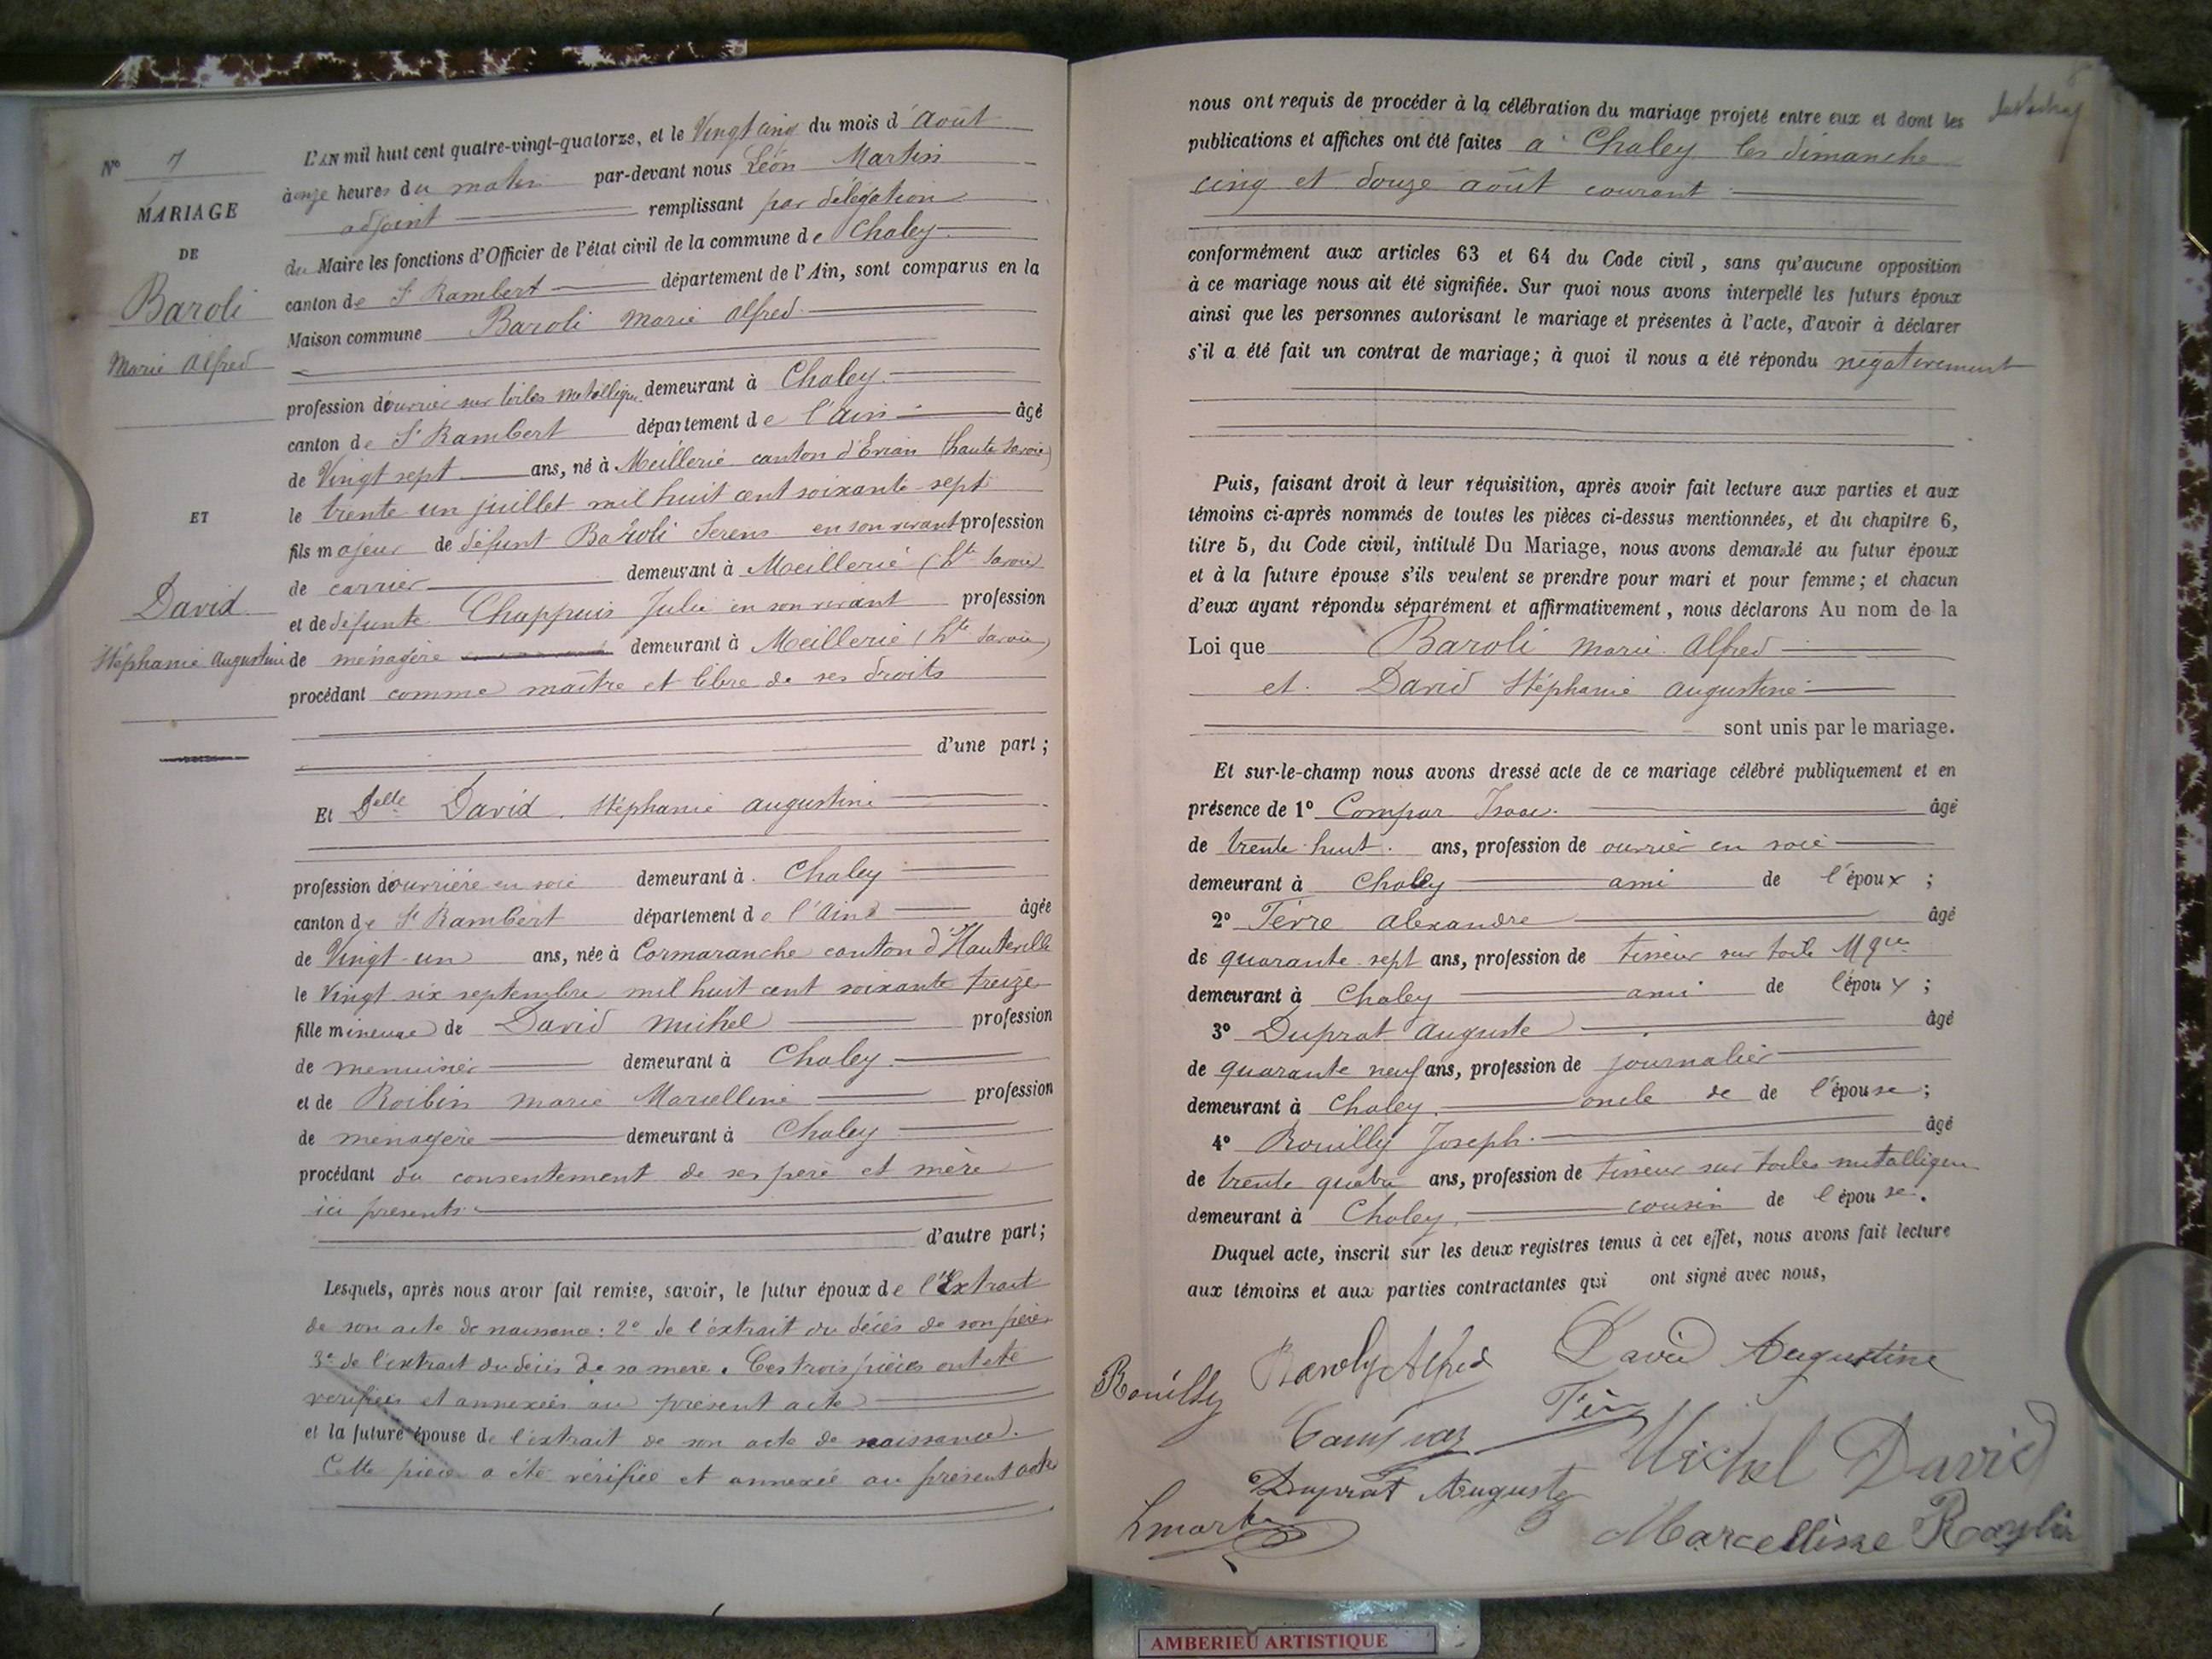 N° 7
MARIAGE
DE
Baroli
Marie Alfred
ET
David
Stéphanie Augustine
L'AN mil huit cent quatre-vingt-quatorze, et le Vingt cinq du mois d'août
à onze heures du matin par-devant nous Léon Martin
adjoint remplissant par délégation
du Maire les fonctions d'Officier de l'état civil de la commune de Chaley
canton de St Rambert département de l'Ain, sont comparus en la
Maison commune Baroli Marie Alfred
profession d'ouvrier sur toiles métalliques demeurant à Chaley
canton de St Rambert département de l'Ain âgé
de Vingt sept ans, né à Meillerie canton d'Evian (haute Savoie)
le trente un juillet mil huit cent soixante sept
fils majeur de défunt Baroli Serens en son vivant profession
de carrier demeurant à Meillerie (Hte Savoie)
et de défunte Chappuis Julie en son vivant profession
de ménagère demeurant à Meillerie (Hte Savoie)
procédant comme maître et libre de ses droits
d'une part;
Et Delle David Stéphanie Augustine
profession d'ouvrière en soie demeurant à Chaley
canton de St Rambert département de l'Ain âgée
de Vingt-un ans, née à Cormaranche canton d'Hauteville
le Vingt six septembre mil huit cent soixante treize
fille mineure de David Michel profession
de menuisier demeurant à Chaley
et de Roibin Marie Marcelline profession
de ménagère demeurant à Chaley
procédant du consentement de ses père et mère
ici présents
d'autre part;
Lesquels, après nous avoir fait remise, savoir, le futur époux de l'Extrait
de son acte de naissance: 2° de l'extrait du décès de son père
3° de l'extrait du décès de sa mère. Ces trois pièces ont été
vérifiées et annexées au présent acte
et la future épouse de l'extrait de son acte de naissance.
Cette pièce a été vérifiée et annexée au présent acte
nous ont requis de procéder à la célébration du mariage projeté entre eux et dont les
publications et affiches ont été faites à Chaley les dimanche
cinq et douze août courant
conformément aux articles 63 et 64 du Code civil, sans qu'aucune opposition
à ce mariage nous ait été signifiée. Sur quoi nous avons interpellé les futurs époux
ainsi que les personnes autorisant le mariage et présentes à l'acte, d'avoir à déclarer
s'il a été fait un contrat de mariage; à quoi il nous a été répondu négativement
Puis, faisant droit à leur réquisition, après avoir fait lecture aux parties et aux
témoins ci-après nommés de toutes les pièces ci-dessus mentionnées, et du chapitre 6,
titre 5, du Code civil, intitulé Du Mariage, nous avons demandé au futur époux
et à la future épouse s'ils veulent se prendre pour mari et pour femme; et chacun
d'eux ayant répondu séparément et affirmativement, nous déclarons Au nom de la
Loi que Baroli Marie Alfred
et David Stéphanie Augustine
sont unis par le mariage.
Et sur-le-champ nous avons dressé acte de ce mariage célébré publiquement et en
présence de 1° Compar Isaac âgé
de trente-huit ans, profession de ouvrier en soie
demeurant à Chaley ami de l'époux;
2° Fèvre Alexandre âgé
de quarante-sept ans, profession de tisseur sur toile Mque
demeurant à Chaley ami de l'époux;
3° Duprat Auguste âgé
de quarante neuf ans, profession de journalier
demeurant à Chaley oncle de de l'épouse;
4° Rouilly Joseph âgé
de trente quatre ans, profession de tisseur sur toiles métalliques
demeurant à Chaley cousin de l'épouse.
Duquel acte, inscrit sur les deux registres tenus à cet effet, nous avons fait lecture
aux témoins et aux parties contractantes qui ont signé avec nous,
Rouilly Baroly Alfred David Augustine
Michel David
Duprat Auguste
L Martin Marcelline Roybin
AMBERIEU ARTISTIQUE